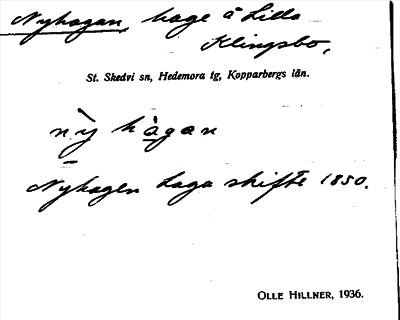 Nyhagan, hage å Lilla
Klingsbo,
St. Skedvi sn, Hedemora tg, Kopparbergs län.
nỳ hàgan
Nyhagen Laga skifte 1850.
OLLE HILLNER, 1936.